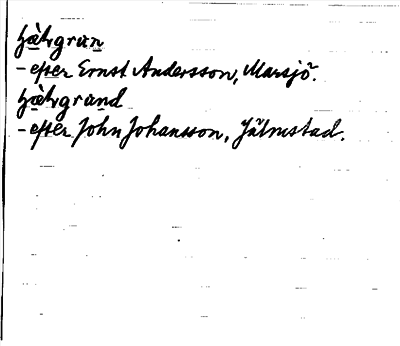 hä̀l̥gru̠n̠
- efter Ernst Andersson, Marsjö.
hä̀l̥grund
- efter John Johansson, Jälmstad.